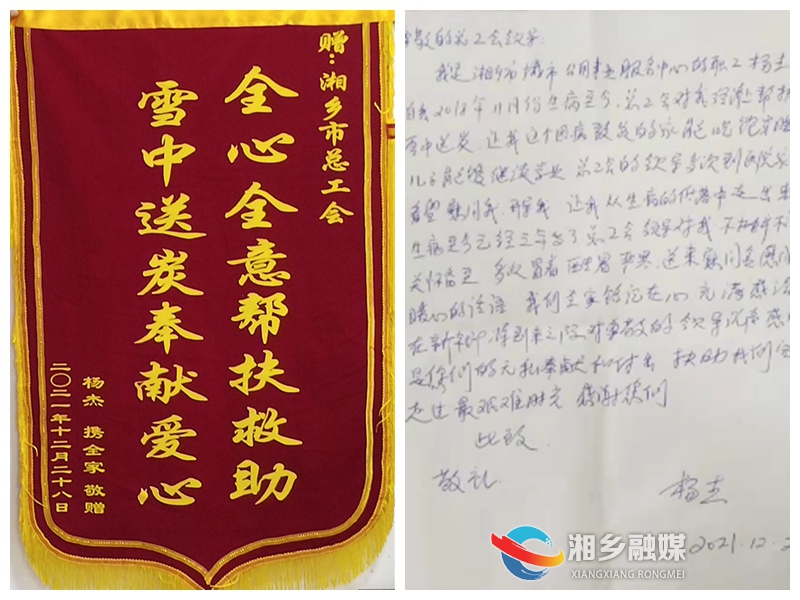 赠：湘乡市总工会
全心全意帮扶救助
雪中送炭奉献爱心
杨杰 携全家 敬赠
二〇二一年十二月二十八日
敬的总工会领导
我是湘乡市城市公用事业服务中心的职工杨杰
自我2018年11月份生病至今，总工会对我经济帮扶
雪中送炭，让我这个因病致贫的家庭吃饱穿暖
儿子能够继续学业 总工会的领导多次到医院
看望慰问我 让我从生病的低落中走出来
生病至今已经三年多了 总工会领导对我不抛弃不
关怀备至 多次冒着酷暑严寒，送来慰问金
暖心的话语 我们全家铭记在心 充满感
在新年即将到来之际 对尊敬的领导说声感
是你们的无私奉献和付出 扶助我们
走过最艰难时光 感谢你们
此致
敬礼
杨杰
2021.12.2
湘乡融媒
XIANGXIANG RONGMEI